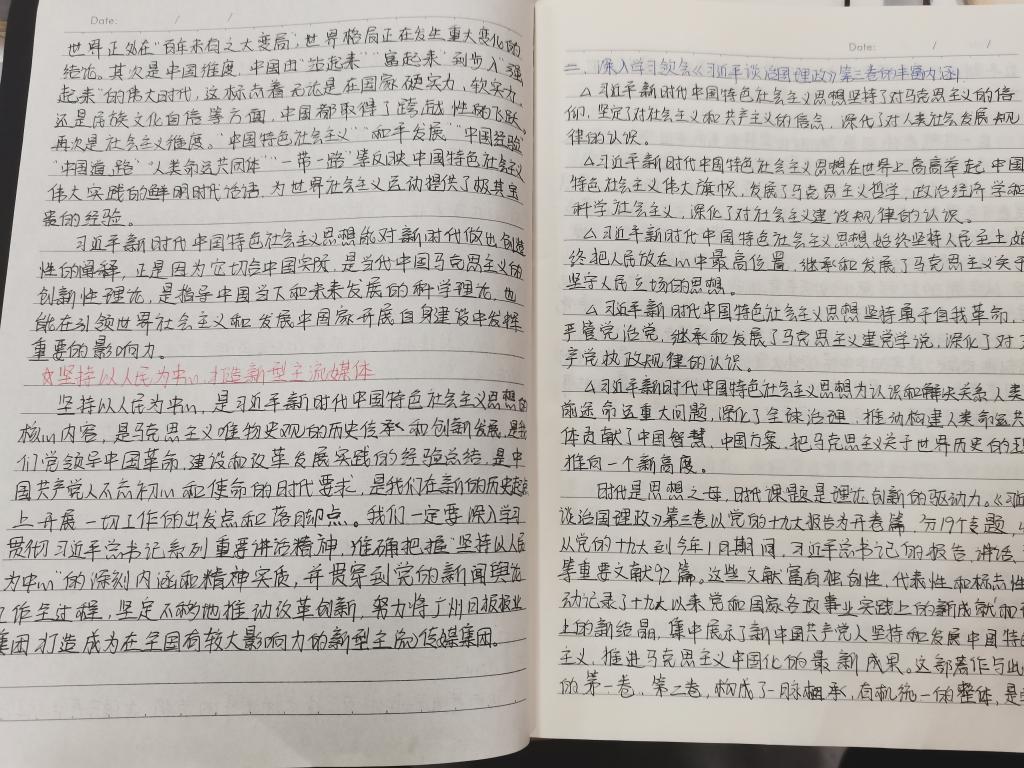 Date: / /
世界正处在"百年未有之大变局",世界格局正在发生重大变化的
结论。其次是中国维度,中国由"站起来""富起来"到步入"强
起来"的伟大时代,这标志着无论是在国家硬实力、软实力,
还是民族文化自信等方面,中国都取得了跨越性的飞跃。
再次是社会主义维度。"中国特色社会主义""和平发展""中国经验"
"中国道路""人类命运共同体""一带一路"等反映中国特色社会主义
伟大实践的鲜明时代话语,为世界社会主义运动提供了极其宝
贵的经验。
习近平新时代中国特色社会主义思想能对新时代做出创造
性的阐释,正是因为它切合中国实际,是当代中国马克思主义的
创新性理论,是指导中国当下和未来发展的科学理论,也
能在引领世界社会主义和发展中国家开展自身建设中发挥
重要的影响力。
☆坚持以人民为中心,打造新型主流媒体
坚持以人民为中心,是习近平新时代中国特色社会主义思想的
核心内容,是马克思主义唯物史观的历史传承和创新发展,是我
们党领导中国革命、建设和改革发展实践的经验总结,是中
国共产党人不忘初心和使命的时代要求,是我们在新的历史起点
上开展一切工作的出发点和落脚点。我们一定要深入学习
贯彻习近平总书记系列重要讲话精神,准确把握"坚持以人民
为中心"的深刻内涵和精神实质,并贯穿到党的新闻舆论
工作全过程,坚定不移地推动改革创新,努力将广州日报报业
集团打造成为在全国有较大影响力的新型主流传媒集团。
Date: / /
二、深入学习领会《习近平谈治国理政》第三卷的丰富内涵
△习近平新时代中国特色社会主义思想坚持了对马克思主义的信
仰,坚定了对社会主义和共产主义的信念,深化了对人类社会发展规
律的认识。
△习近平新时代中国特色社会主义思想在世界上高高举起中国
特色社会主义伟大旗帜,发展了马克思主义哲学、政治经济学和
科学社会主义,深化了对社会主义建设规律的认识。
△习近平新时代中国特色社会主义思想始终坚持人民至上始
终把人民放在心中最高位置,继承和发展了马克思主义关于
坚守人民立场的思想。
△习近平新时代中国特色社会主义思想坚持勇于自我革命,
严管党治党,继承和发展了马克思主义建党学说,深化了对
产党执政规律的认识。
△习近平新时代中国特色社会主义思想为认识和解决关系人类
前途命运重大问题,深化了全球治理、推动构建人类命运共
体贡献了中国智慧、中国方案,把马克思主义关于世界历史的
推向一个新高度。
时代是思想之母,时代课题是理论创新的驱动力。《习近
谈治国理政》第三卷以党的十九大报告为开卷篇,分19个专题,
从党的十九大到今年1月期间,习近平总书记的报告、讲话、
等重要文献92篇。这些文献富有独创性、代表性和标志性
动记录了十九大以来党和国家各项事业实践上的新成就和
上的新结晶,集中展示了新中国共产党人坚持和发展中国特
主义,推进马克思主义中国化的最新成果。这部著作与此
的第一卷、第二卷,构成了一脉相承、有机统一的整体,是